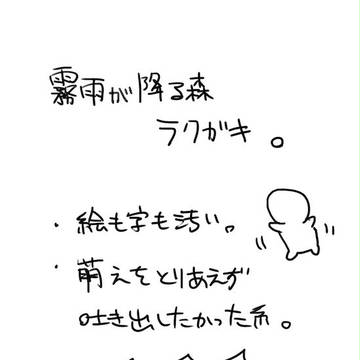 霧雨が降る森
ラクガキ。
・絵も字も汚い。
・萌えをとりあえず
吐き出したかった系。